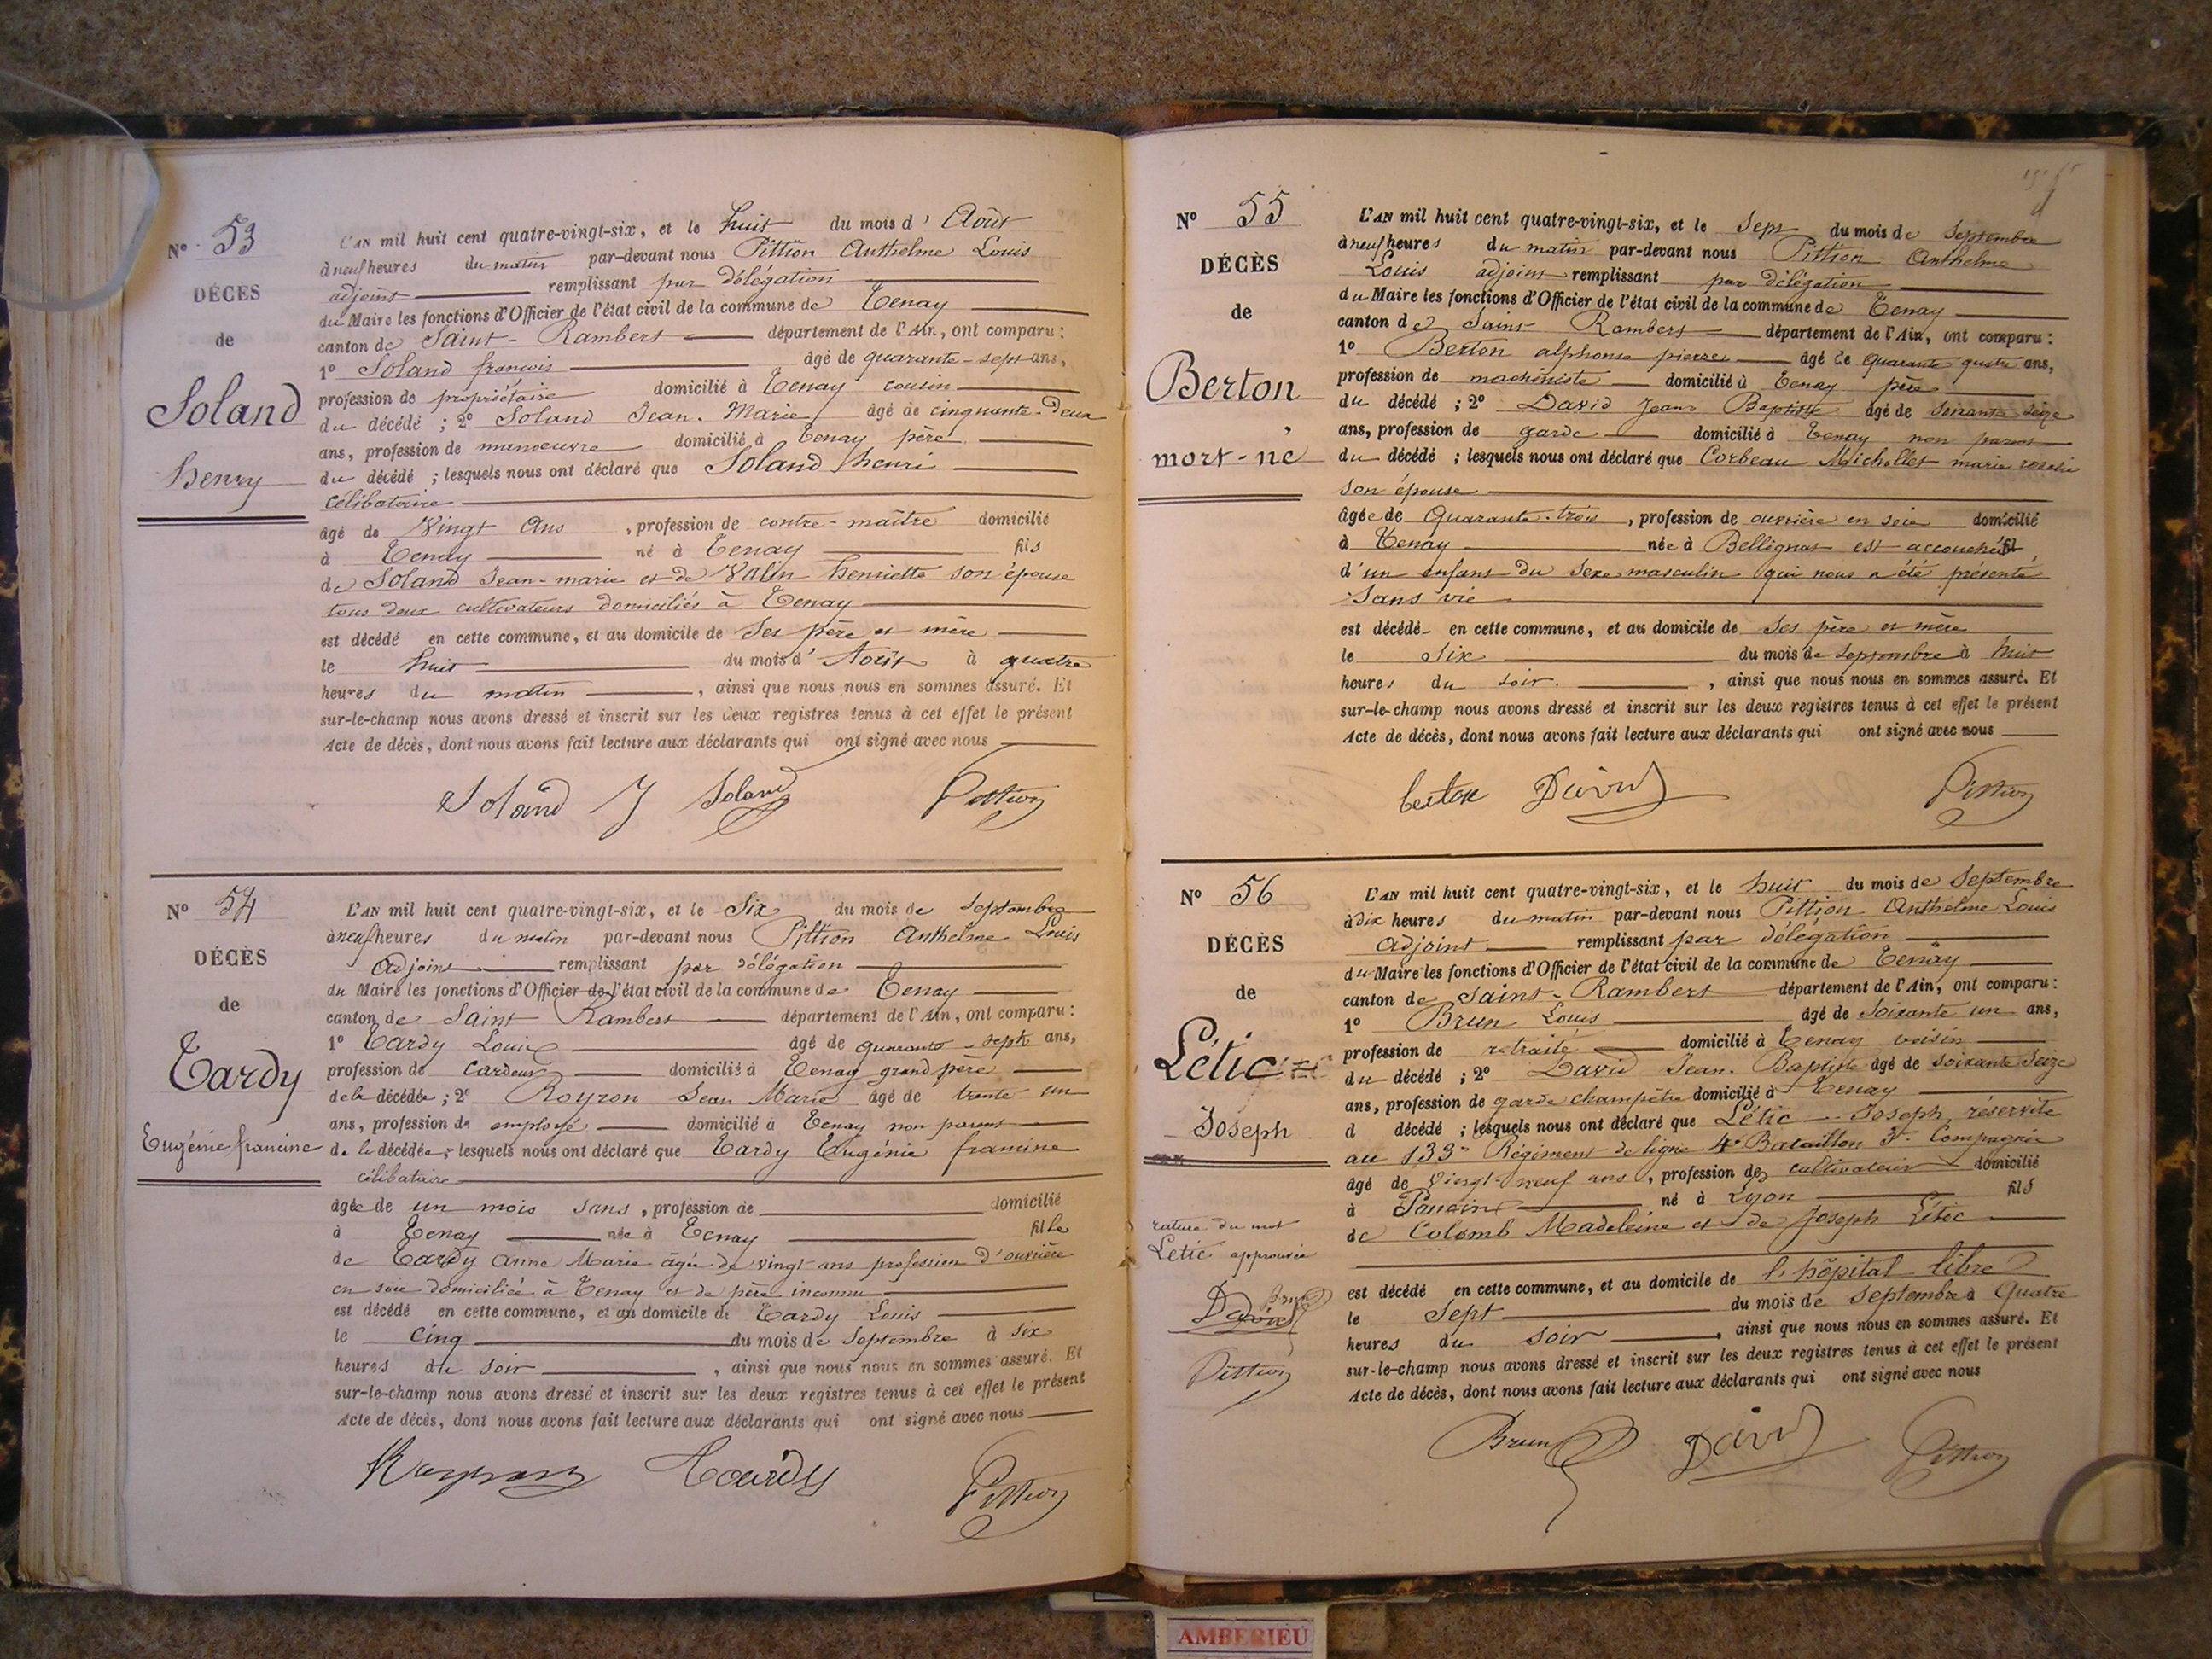 N° 53
DÉCÈS
de
Soland
henry
L'AN mil huit cent quatre-vingt-six, et le huit du mois d' Août
à neuf heures du matin par-devant nous Pittion Anthelme Louis
adjoint remplissant par délégation
du Maire les fonctions d'Officier de l'état civil de la commune de Tenay
canton de Saint-Rambert département de l'Ain, ont comparu :
1° Soland françois âgé de quarante-sept ans,
profession de propriétaire domicilié à Tenay cousin
du décédé ; 2° Soland Jean-Marie âgé de cinquante-deux
ans, profession de manoeuvre domicilié à Tenay père
du décédé ; lesquels nous ont déclaré que Soland henri
célibataire
âgé de Vingt Ans , profession de contre-maître domicilié
à Tenay né à Tenay fils
de Soland Jean-marie et de Valin henriette son épouse
tous deux cultivateurs domiciliés à Tenay
est décédé en cette commune, et au domicile de Ses père et mère
le huit du mois d' Août à quatre
heures du matin , ainsi que nous nous en sommes assuré. Et
sur-le-champ nous avons dressé et inscrit sur les deux registres tenus à cet effet le présent
Acte de décès, dont nous avons fait lecture aux déclarants qui ont signé avec nous
Soland J Soland Pittion
N° 54
DÉCÈS
de
Tardy
Eugénie francine
L'AN mil huit cent quatre-vingt-six, et le Six du mois de Septembre
à neuf heures du matin par-devant nous Pittion Anthelme Louis
Adjoint remplissant par délégation
du Maire les fonctions d'Officier de l'état civil de la commune de Tenay
canton de Saint Rambert département de l'Ain, ont comparu :
1° Tardy Louis âgé de quarante-sept ans,
profession de Cardeur domicilié à Tenay grand père
de la décédée ; 2° Royron Jean Marie âgé de trente-un
ans, profession de employé domicilié à Tenay non parent
de la décédée ; lesquels nous ont déclaré que Tardy Eugénie francine
célibataire
âgée de un mois sans , profession de domicilié
à Tenay née à Tenay fille
de Tardy Anne Marie âgée de vingt ans profession d'ouvrière
en soie domiciliée à Tenay et de père inconnu
est décédé en cette commune, et au domicile de Tardy Louis
le Cinq du mois de Septembre à six
heures du soir , ainsi que nous nous en sommes assuré. Et
sur-le-champ nous avons dressé et inscrit sur les deux registres tenus à cet effet le présent
Acte de décès, dont nous avons fait lecture aux déclarants qui ont signé avec nous
Royron Tardy Pittion
N° 55
DÉCÈS
de
Berton
mort-né
L'AN mil huit cent quatre-vingt-six, et le Sept du mois de Septembre
à neuf heures du matin par-devant nous Pittion Anthelme
Louis adjoint remplissant par délégation
du Maire les fonctions d'Officier de l'état civil de la commune de Tenay
canton de Saint Rambert département de l'Ain, ont comparu :
1° Berton alphonse pierre âgé de quarante quatre ans,
profession de machiniste domicilié à Tenay père
du décédé ; 2° David Jean Baptiste âgé de soixante seize
ans, profession de garde domicilié à Tenay non parent
du décédé ; lesquels nous ont déclaré que Corbeau Michollet marie rosalie
son épouse
âgée de Quarante-trois , profession de ouvrière en soie domicilié
à Tenay née à Bellignat est accouchée fil
d'un enfant du sexe masculin qui nous a été présenté
Sans vie
est décédé en cette commune, et au domicile de Ses père et mère
le Six du mois de Septembre à huit
heures du soir , ainsi que nous nous en sommes assuré. Et
sur-le-champ nous avons dressé et inscrit sur les deux registres tenus à cet effet le présent
Acte de décès, dont nous avons fait lecture aux déclarants qui ont signé avec nous
berton David Pittion
N° 56
DÉCÈS
de
Létic
Joseph
rature du mot
Letic approuvée
Brun
David
Pittion
L'AN mil huit cent quatre-vingt-six, et le huit du mois de Septembre
à dix heures du matin par-devant nous Pittion Anthelme Louis
Adjoint remplissant par délégation
du Maire les fonctions d'Officier de l'état civil de la commune de Tenay
canton de Saint-Rambert département de l'Ain, ont comparu :
1° Brun Louis âgé de Soixante un ans,
profession de retraité domicilié à Tenay voisin
du décédé ; 2° David Jean-Baptiste âgé de soixante seize
ans, profession de garde champêtre domicilié à Tenay
d décédé ; lesquels nous ont déclaré que Létic Joseph réserviste
au 133e Régiment de ligne 4e Bataillon 3e Compagnie
âgé de vingt-neuf ans , profession de cultivateur domicilié
à Poncin né à Lyon fils
de Colomb Madeleine et de Joseph Létic
est décédé en cette commune, et au domicile de l'hôpital libre
le Sept du mois de Septembre à Quatre
heures du soir , ainsi que nous nous en sommes assuré. Et
sur-le-champ nous avons dressé et inscrit sur les deux registres tenus à cet effet le présent
Acte de décès, dont nous avons fait lecture aux déclarants qui ont signé avec nous
Brun David Pittion
AMBERIEU